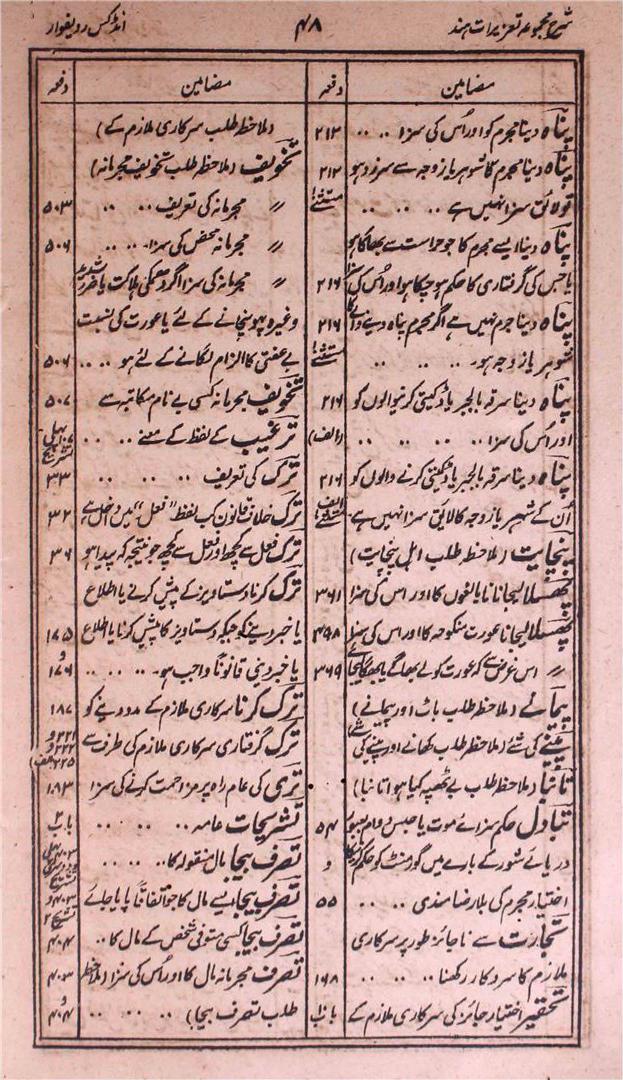 شرح مجموعہ تعزیرات ہند ۴۸ انڈکس ردیفوار
مضامین دفعہ
پناہ دینا مجرم کو اور اُس کی سزا ۲۱۲
پناہ دینا مجرم کا شوہر یا زوجہ سے سرزد ہو ۲۱۲
تو لائق سزا نہیں ہے مستثنےٰ
پناہ دینا ایسے مجرم کا جو حراست سے بھاگا ہو
یا جس کی گرفتاری کا حکم ہو چکا ہو اور اُس کی سزا ۲۱۶
پناہ دینا جرم نہیں ہے اگر مجرم پناہ دینے والے کا ۲۱۶
شوہر یا زوجہ ہو مستثنےٰ
پناہ دینا سرقہ بالجبر یا ڈکیتی کرنیوالوں کو ۲۱۶
اور اُس کی سزا (الف)
پناہ دینا سرقہ بالجبر یا ڈکیتی کرنے والوں کو ۲۱۶
اُن کے شوہر یا زوجہ کا لائق سزا نہیں ہے الف مستثنےٰ
پنچایت (ملاحظہ طلب اہل پنچایت)
پھسلا لیجانا نابالغوں کا اور اس کی سزا ۳۶۱
پھسلا لیجانا عورت منکوحہ کا اور اس کی سزا ۴۹۸
〃 اس غرض سے کہ عورت کو لے بھاگے یا بھگا لیجائے ۳۶۹
پیمانے (ملاحظہ طلب باٹ اور پیمانے)
پینے کی شئے (ملاحظہ طلب کھانے اور پینے کی شئے)
تانبا (ملاحظہ طلب بے ٹھپہ کیا ہوا تانبا)
تبادل حکم سزائے موت یا حبس دوام بعبور ۵۴
دریائے شور کے بارے میں گورنمنٹ کو حکم کرنیکا و
اختیار مجرم کی بلا رضامندی ۵۵
تجارت سے ناجائز طور پر سرکاری
ملازم کا سروکار رکھنا ۱۶۸
تحقیر اختیار جائز کی سرکاری ملازم کے باب ۱۰
مضامین دفعہ
(ملاحظہ طلب سرکاری ملازم کے)
تخویف (ملاحظہ طلب تخویف مجرمانہ)
〃 مجرمانہ کی تعریف ۵۰۳
〃 مجرمانہ محض کی سزا ۵۰۶
〃 مجرمانہ کی سزا اگر دھمکی ہلاکت یا ضرر شدید
وغیرہ پہونچانے کے لئے یا عورت کی نسبت
بے عفتی کا الزام لگانے کے لئے ہو ۵۰۶
تخویف مجرمانہ کسی بے نام مکاتبہ سے ۵۰۷
ترغیب کے لفظ کے معنے ۱۰۷ پہلی تشریح
ترک کی تعریف ۳۳
ترک خلاف قانون کب لفظ "فعل" میں داخل ہے ۳۲
ترک فعل سے کچھ اور فعل سے کچھ جو نتیجہ کہ پیدا ہو ۳۶
ترک کرنا دستاویز کے پیش کرنے یا اطلاع
یا خبر دینے کو جبکہ دستاویز کا پیش کرنا یا اطلاع ۱۷۵
یا خبر دینی قانوناً واجب ہو و ۱۷۶
ترک کرنا سرکاری ملازم کے مدد دینے کو ۱۸۷
ترک گرفتاری سرکاری ملازم کی طرف سے ۲۲۱ و ۲۲۲ و ۲۲۵ (الف)
تری کی عام راہ پر مزاحمت کرنے کی سزا ۲۸۳
تشریحات عامہ باب ۲
تصرف بیجا مال منقولہ کا ۴۰۳
تصرف بیجا ایسے مال کا جو اتفاقاً پایا جائے ۴۰۳ و تشریح ۲
تصرف بیجا کسی متوفی شخص کے مال کا ۴۰۴
تصرف مجرمانہ مال کا اور اُس کی سزا (ملاحظہ ۴۰۳
طلب تصرف بیجا) و ۴۰۴